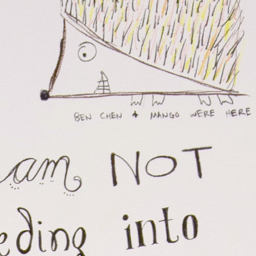 BEN CHEN & MANGO WERE HERE
am NOT
eding into